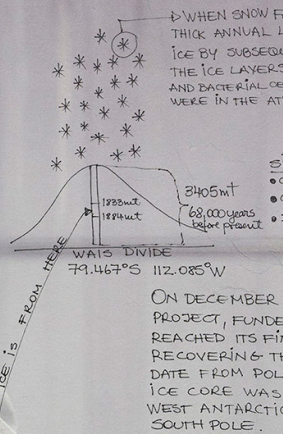 WHEN SNOW F
THICK ANNUAL L
ICE BY SUBSEQU
THE ICE LAYERS
AND BACTERIAL CE
WERE IN THE AT
3405mt
1833mt
1884mt
68,000 years
before present
WAIS DIVIDE
79.467°S 112.085°W
ICE IS FROM HERE
ON DECEMBER
PROJECT, FUNDE
REACHED ITS FI
RECOVERING TH
DATE FROM POL
ICE CORE WAS
WEST ANTARCTIC
SOUTH POLE.